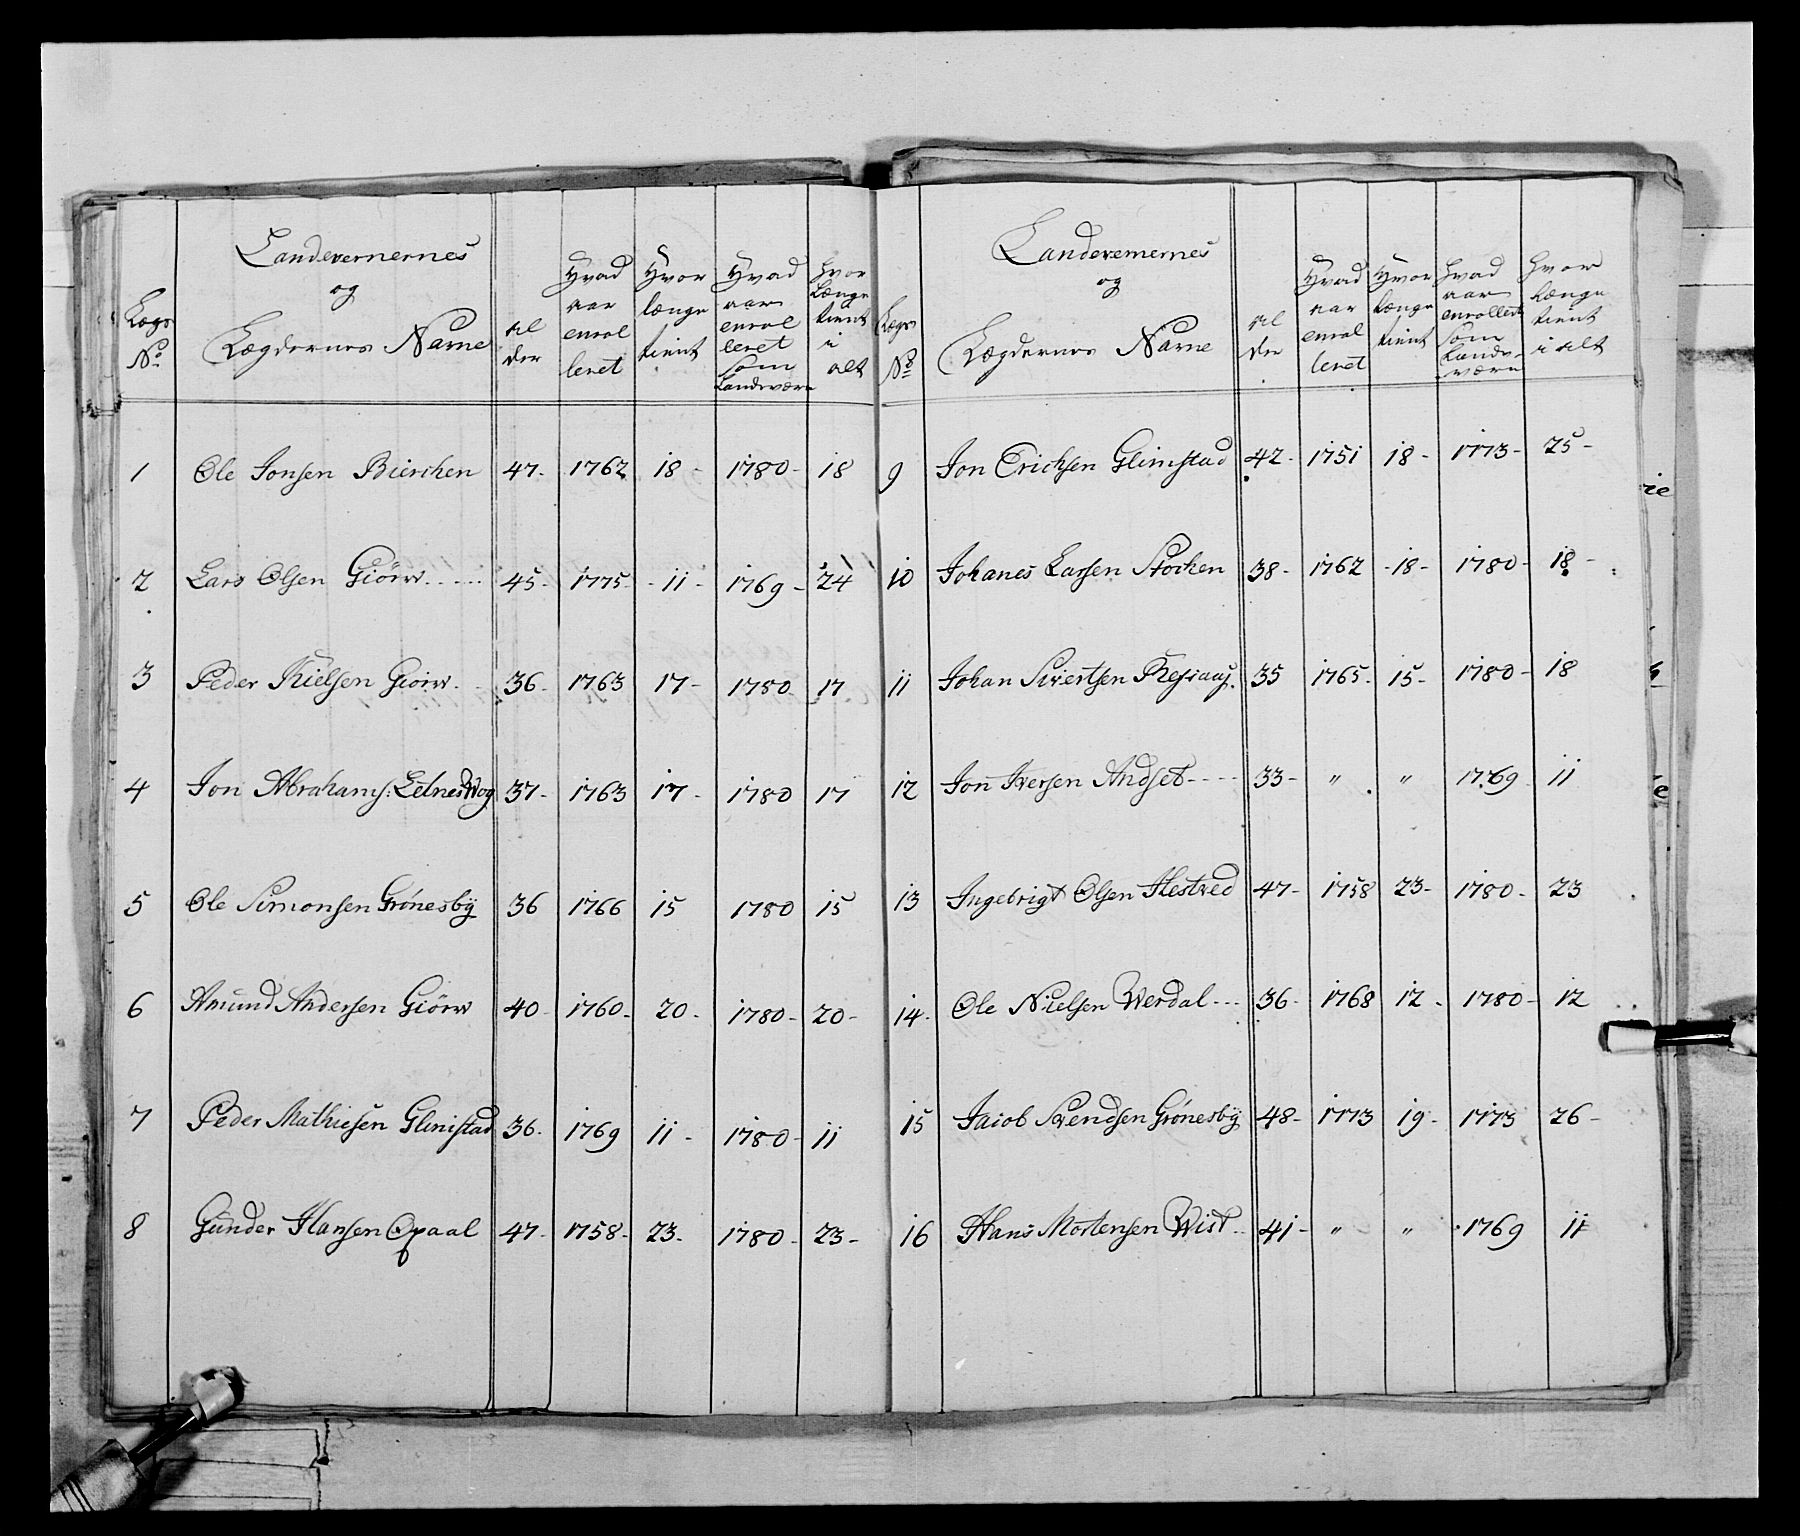 Landevernernes
og
Lægdernes Navne
Lægs
No
Al
der
Hvad
aar
enrol
leret
Hvor
længe
tient
Hvad
aar
enrol
leret
Som
Landværn
Hvor
Længe
tient
i
alt
1 Ole Jonsen Bierchen 47- 1762 18- 1780- 18
2 Lars Olsen Giörw 45- 1775 -11- 1769- 24
3 Peder Nielsen Giörw 36- 1763 17- 1780 17
4 Jon Abrahams: Letnes Wog 37- 1763 17- 1780 17
5 Ole Simonsen Grönesbÿ 36 1766 15 1780 15
6 Amund Andersen Giörw 40- 1760- 20- 1780- 20-
7 Peder Mathiesen Glimstad 36- 1769 11- 1780- 11
8 Gunder Hansen Opaal 47- 1758- 23- 1780- 23-
Landevernernes
og
Lægdernes Navne
Lægs
No
Al
der
Hvad
aar
enrol
leret
Hvor
længe
tient
Hvad
aar
enrolleret
Som
Landv-
værn
Hvor
Længe
tient
i alt
9 Jon Erichsen Glimstad 42- 1751 18- 1773- 25-
10 Johanes Larsen Stöchen 38- 1762 -18- 1780- 18-
11 Johan Sivertsen 35 1765- 15- 1780- 18
12 Jon Iversen Andset 33- " " 1769 11
13 Ingebrigt Olsen Hestved 47- 1758 23- 1780- 23
14 Ole Nielsen Werdal 36- 1768 12- 1780- 12
15 Jacob Svendsen Grönesbÿ 48- 1773 19- 1773 26-
16 Hans Mortensen Wist 41- " " 1769 11